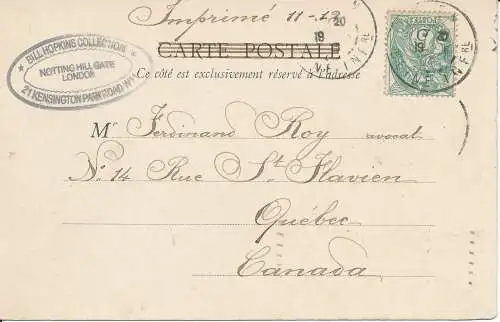 Imprimé 11-
CARTE POSTALE
Ce côté est exclusivement réservé à l'adresse
★ BILL HOPKINS COLLECTION ★
NOTTING HILL GATE
LONDON
21 KENSINGTON PARK ROAD W11
20
19
INFRE
Mr Ferdinand Roy avocat
No. 14 Rue St Flavien
Québec
Canada